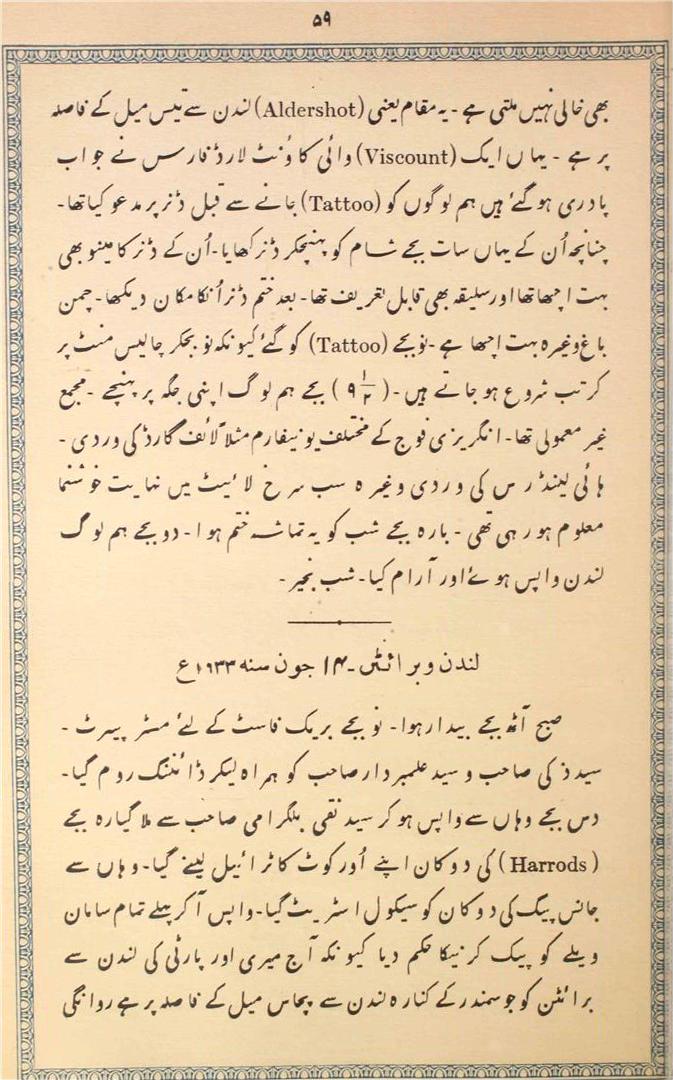 ۵۹
بھی خالی نہیں ملتی ہے - یہ مقام یعنی (Aldershot) لندن سے تیس میل کے فاصلہ
پر ہے - یہاں ایک (Viscount) وائی کاؤنٹ لارڈ فارس نے جو اب
پادری ہوگئے ہیں ہم لوگوں کو (Tattoo) جانے سے قبل ڈنر پر مدعو کیا تھا -
چنانچہ اُن کے یہاں سات بجے شام کو پہنچکر ڈنر کھایا - اُن کے ڈنر کا مینو بھی
بہت اچھا تھا اور سلیقہ بھی قابل تعریف تھا - بعد ختم ڈنر اُنکا مکان دیکھا - چمن
باغ وغیرہ بہت اچھا ہے - نو بجے (Tattoo) کو گئے کیونکہ نو بجکر چالیس منٹ پر
کرتب شروع ہو جاتے ہیں - (۹ ۱/۲) بجے ہم لوگ اپنی جگہ پر پہنچے - مجمع
غیر معمولی تھا - انگریزی فوج کے مختلف یونیفارم مثلاً لائف گارڈ کی وردی -
ہائی لینڈرس کی وردی وغیرہ سب سرخ لائیٹ میں نہایت خوشنما
معلوم ہو رہی تھی - بارہ بجے شب کو یہ تماشہ ختم ہوا - دو بجے ہم لوگ
لندن واپس ہوئے اور آرام کیا - شب بخیر -
لندن و برائٹن - ۱۴ جون سنہ ۱۹۳۳ ع
صبح آٹھ بجے بیدار ہوا - نو بجے بریک فاسٹ کے لئے مسٹر پیرٹ -
سید ذکی صاحب و سید علمبردار صاحب کو ہمراہ لیکر ڈائننگ روم گیا -
دس بجے وہاں سے واپس ہو کر سید نقی بلگرامی صاحب سے ملا گیارہ بجے
(Harrods) کی دوکان اپنے اُورکوٹ کا ٹرائیل لینے گیا - وہاں سے
جانس پیگ کی دوکان کو سیکول اسٹریٹ گیا - واپس آ کر پہلے تمام سامان
ویلے کو پیک کرنیکا حکم دیا کیونکہ آج میری اور پارٹی کی لندن سے
برائٹن کو جو سمندر کے کنارہ لندن سے پچاس میل کے فاصلہ پر ہے روانگی